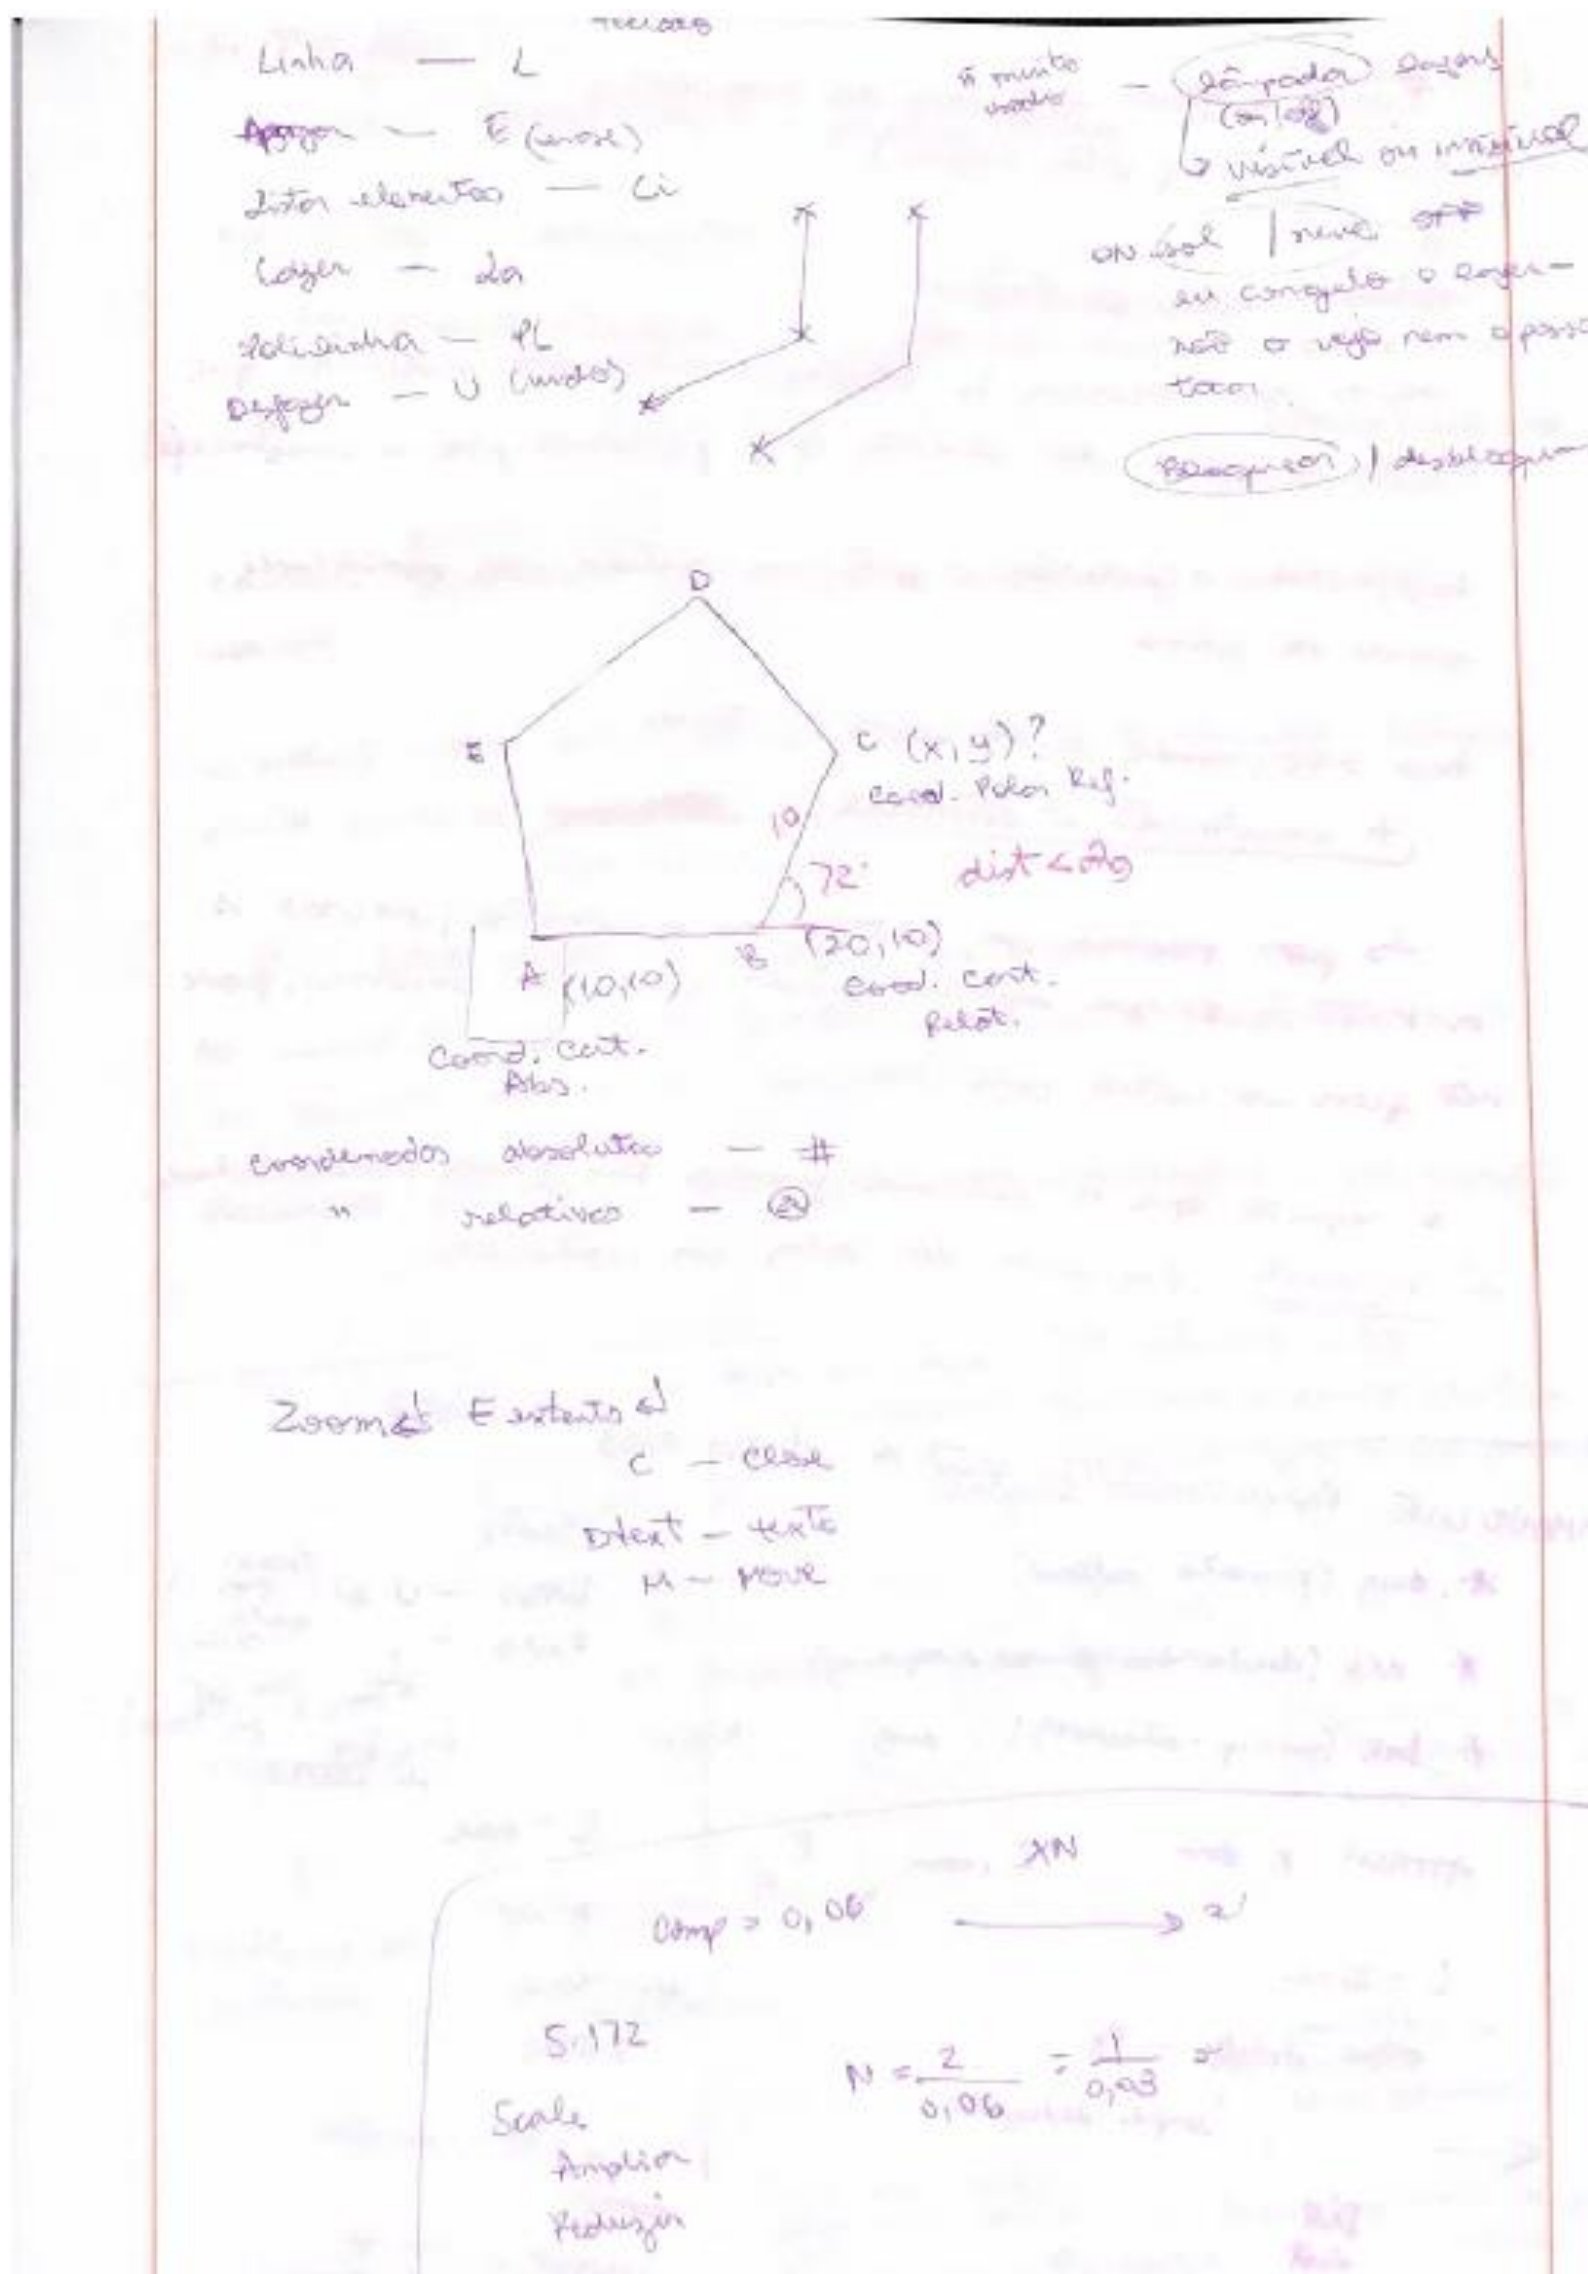 Teclado
Linha — L
Apagar — E (erase)
Listar elementos — Li
Layer — La
Polilinha — PL
Desfazer — U (undo)
ñ muito usado — lâmpada layers
(on/off)
↳ visível ou invisível
ON sol / neve OFF
eu congelo o layer —
não o vejo nem o posso
tocar
Bloquear / desbloquear
D
E
C (x, y) ?
Coord. Polar Rel.
10
72° dist < ag
A (10,10)
B (20,10)
Coord. Cart.
Relat.
Coord. Cart.
Abs.
Coordenadas absolutas — #
" relativas — @
Zoom ↵ E extents ↵
C — Close
Dtext — texto
M — Move
XN
Comp = 0,06 → 2
5.172
N = 2/0,06 = 1/0,03 =
Scale
Ampliar
Reduzir